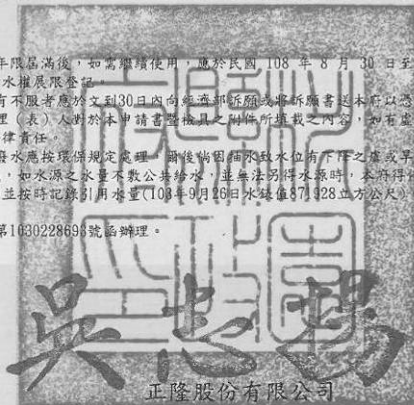 年限屆滿後，如需繼續使用，應於民國 108 年 8 月 30 日至
水權展限登記。
有不服者應於文到30日內向經濟部訴願或將訴願書送本府以憑
理（表）人對於本申請書暨檢具之附件所填載之內容，如有虛
律責任。
廢水應按環保規定處理，爾後倘因抽水致水位有下降之虞或旱
，如水源之水量不敷公共給水，並無法另得水源時，本府得
並按時記錄引用水量(103年9月26日水錶值871928立方公尺)
第1030228693號函辦理。
吳志揚
正隆股份有限公司